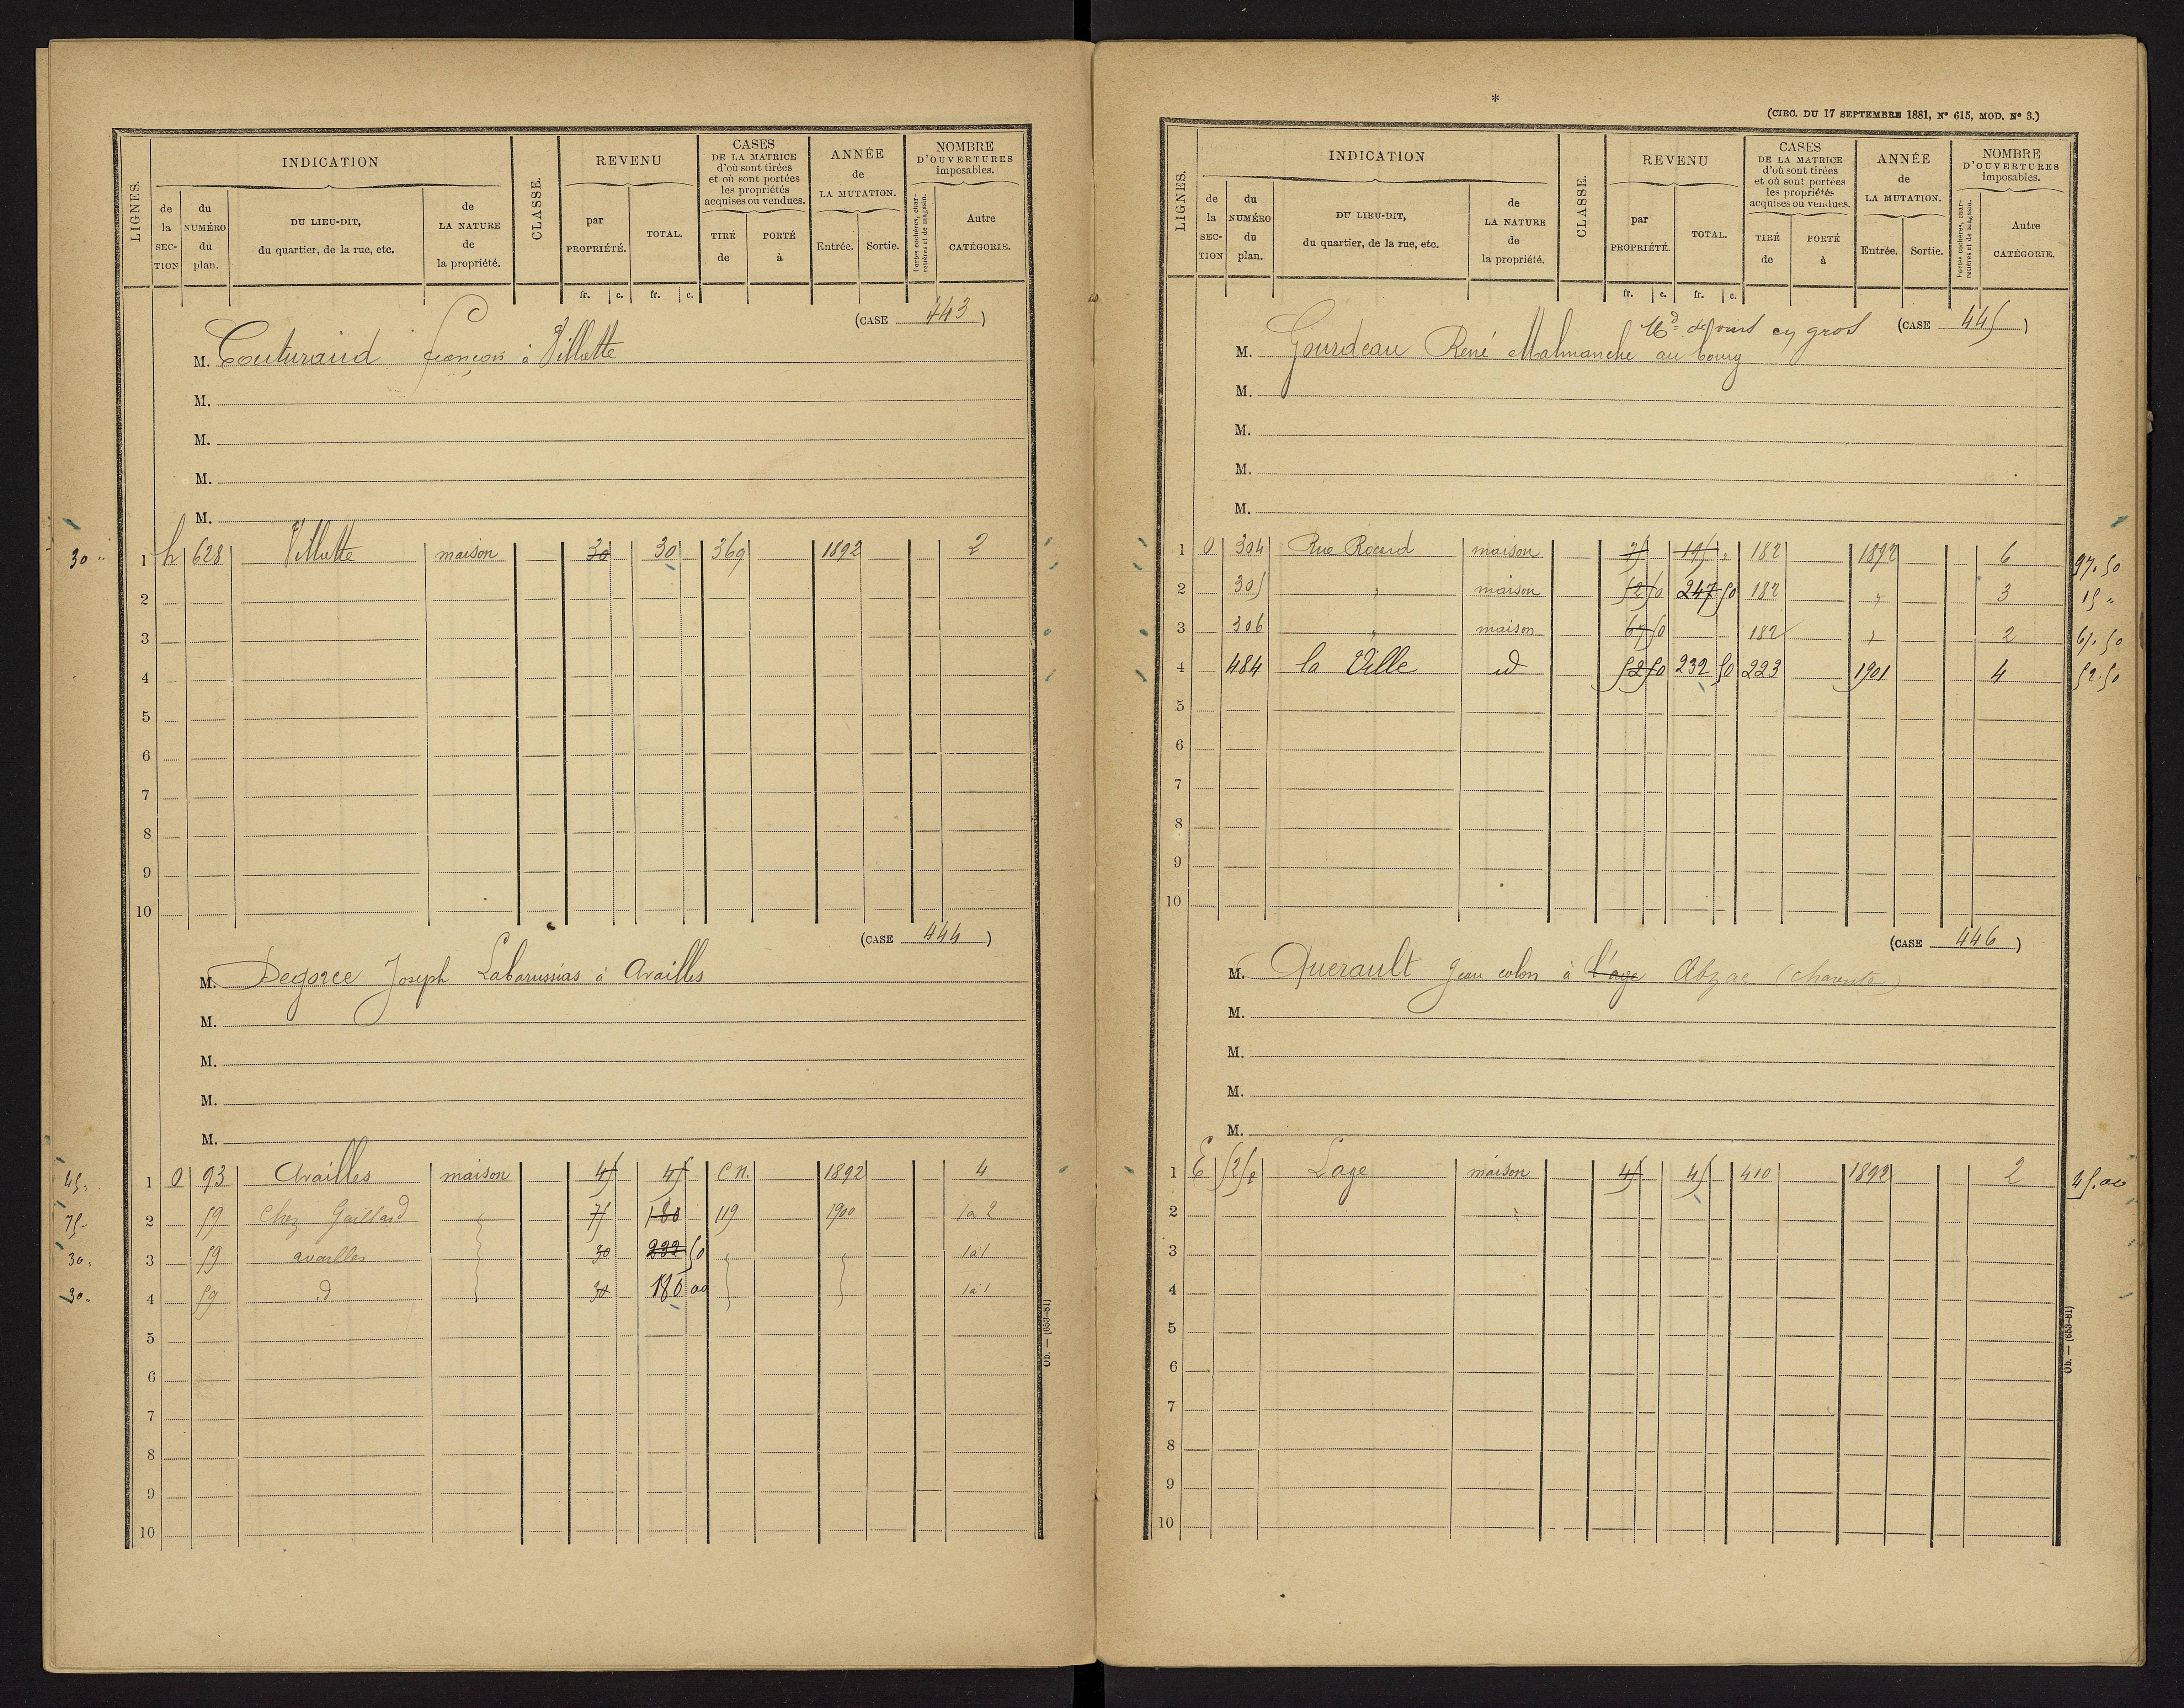 LIGNES.
INDICATION
de la SECTION
du NUMÉRO du plan.
DU LIEU-DIT, du quartier, de la rue, etc.
de LA NATURE de la propriété.
CLASSE.
REVENU
par PROPRIÉTÉ.
TOTAL.
CASES DE LA MATRICE d'où sont tirées et où sont portées les propriétés acquises ou vendues.
TIRÉ de
PORTÉ à
ANNÉE de LA MUTATION.
Entrée.
Sortie.
NOMBRE D'OUVERTURES imposables.
Portes cochères, charretières et de magasin.
Autre CATÉGORIE.
fr. c. fr. c.
(CASE 443)
M. Couturaud françois à Villatte
M.
M.
M.
M.
30 " 1 h 628 Villatte maison 30 30 369 1892 2
2
3
4
5
6
7
8
9
10
(CASE 444)
M. Degorce Joseph Labarussias à Availles
M.
M.
M.
M.
45. 1 O 93 Availles maison 45 45 C n. 1892 4
75- 2 59 Chez Gaillard 75 180 119 1900 1 a 2
30. 3 59 availles 30 232 50 1 à 1
30. 4 59 d 30 180 00 1 à 1
5
6
7
8
9
10
Ob. — (653-81)
*
(CIRC. DU 17 SEPTEMBRE 1881, N° 615, MOD. N° 3.)
LIGNES.
INDICATION
de la SECTION
du NUMÉRO du plan.
DU LIEU-DIT, du quartier, de la rue, etc.
de LA NATURE de la propriété.
CLASSE.
REVENU
par PROPRIÉTÉ.
TOTAL.
CASES DE LA MATRICE d'où sont tirées et où sont portées les propriétés acquises ou vendues.
TIRÉ de
PORTÉ à
ANNÉE de LA MUTATION.
Entrée.
Sortie.
NOMBRE D'OUVERTURES imposables.
Portes cochères, charretières et de magasin.
Autre CATÉGORIE.
fr. c. fr. c.
Md de vins en gros (CASE 445)
M. Gourdeau René Malmanche au bourg
M.
M.
M.
M.
1 O 304 Rue Rocard maison 75 195 " 182 1892 6 97.50
2 305 " maison 52 50 247 50 182 " 3 15 "
3 306 " maison 67 50 182 " 2 67.50
4 484 la Ville id 52 50 232 50 223 1901 4 52.50
5
6
7
8
9
10
(CASE 446)
M. Querault Jean colon à l'age Abzac (Charente)
M.
M.
M.
M.
1 E Lage maison 45 45 410 1892 2 45.00
2
3
4
5
6
7
8
9
10
Ob. — (653-81)